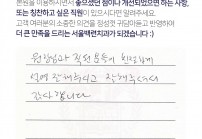 본원을 이용하시면서 좋았던 점이나 개선되었으면 하는 사항,
또는 칭찬하고 싶은 직원이 있으시다면 알려주세요.
고객 여러분의 소중한 의견을 정성껏 귀담아듣고 반영하여
더 큰 만족을 드리는 서울백련치과가 되겠습니다.
원장님과 직원분들이 친절하게
설명 잘해주시고 잘해주셔서
감사합니다